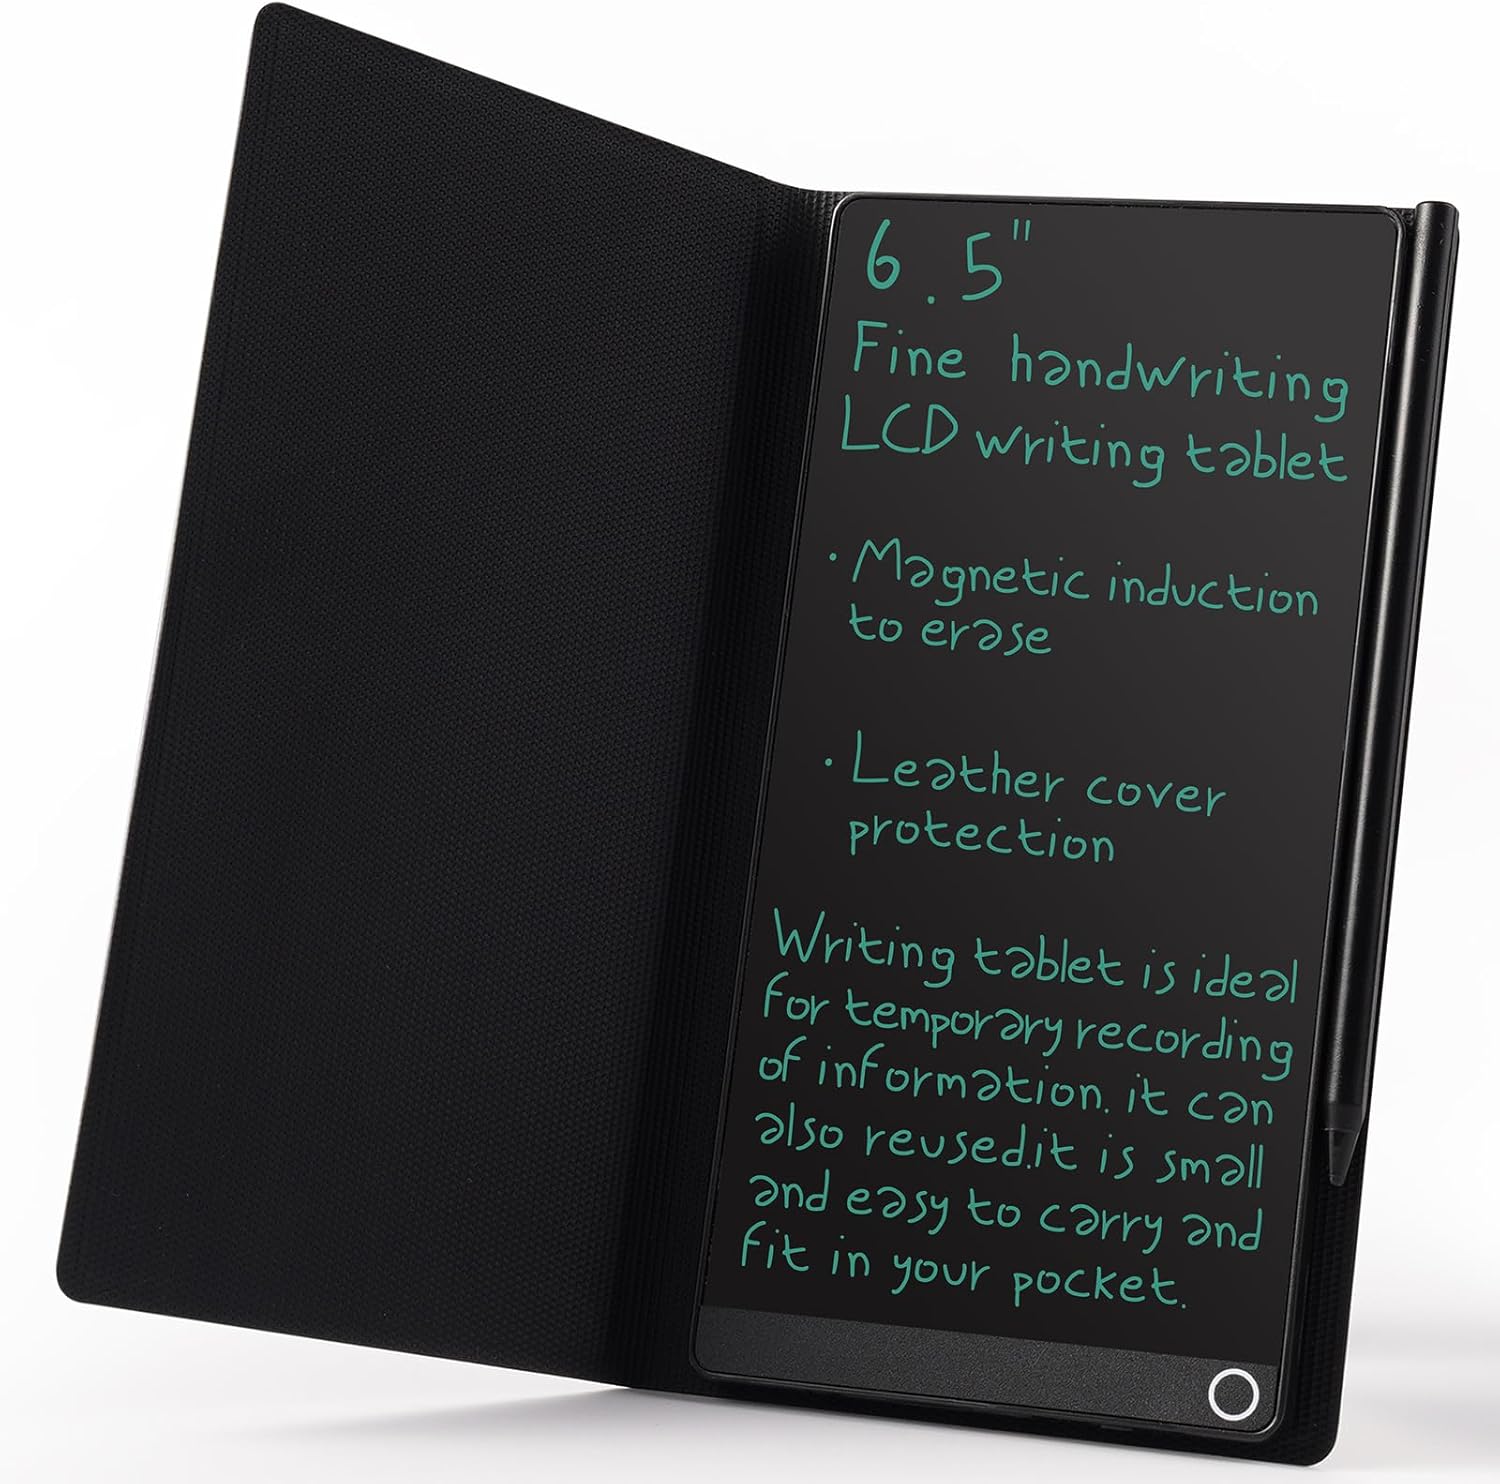 6.5"
Fine handwriting
LCD writing tablet
· Magnetic induction
to erase
· Leather cover
protection
Writing tablet is ideal
for temporary recording
of information. it can
also reused.it is small
and easy to carry and
fit in your pocket.